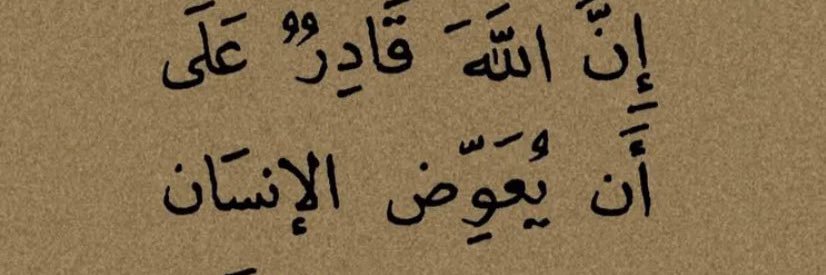 إِنَّ اللَّهَ قَادِرٌ عَلَى
أَن يُعَوِّضَ الإنسَان